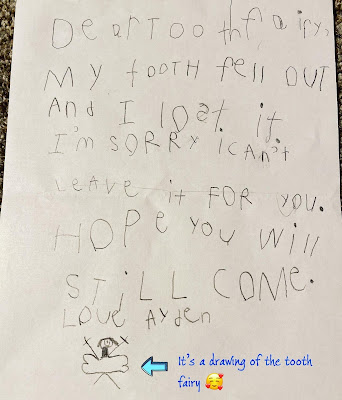 Dear Tooth fairy,
My tooth fell out
And I lost it
I'm SORRY i can't
Leave it FOR you.
HOPe you will
STiLL COME.
Love Ayden
It's a drawing of the tooth
fairy 🥰